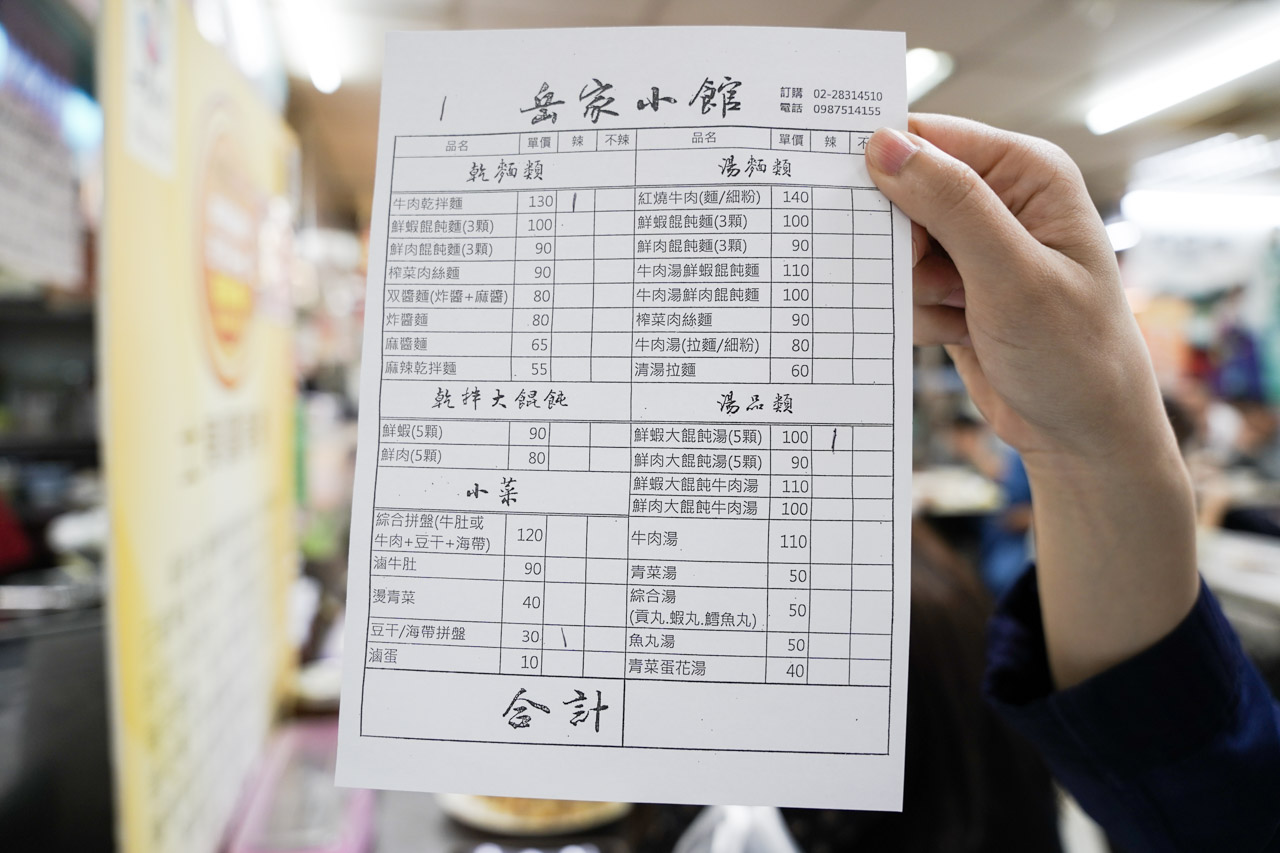 1
岳家小館
訂購 02-28314510
電話 0987514155
品名 單價 辣 不辣
乾麵類
牛肉乾拌麵 130 1
鮮蝦餛飩麵(3顆) 100
鮮肉餛飩麵(3顆) 90
榨菜肉絲麵 90
双醬麵(炸醬+麻醬) 80
炸醬麵 80
麻醬麵 65
麻辣乾拌麵 55
乾拌大餛飩
鮮蝦(5顆) 90
鮮肉(5顆) 80
小菜
綜合拼盤(牛肚或
牛肉+豆干+海帶) 120
滷牛肚 90
燙青菜 40
豆干/海帶拼盤 30 1
滷蛋 10
品名 單價 辣 不
湯麵類
紅燒牛肉(麵/細粉) 140
鮮蝦餛飩麵(3顆) 100
鮮肉餛飩麵(3顆) 90
牛肉湯鮮蝦餛飩麵 110
牛肉湯鮮肉餛飩麵 100
榨菜肉絲麵 90
牛肉湯(拉麵/細粉) 80
清湯拉麵 60
湯品類
鮮蝦大餛飩湯(5顆) 100 1
鮮肉大餛飩湯(5顆) 90
鮮蝦大餛飩牛肉湯 110
鮮肉大餛飩牛肉湯 100
牛肉湯 110
青菜湯 50
綜合湯
(貢丸.蝦丸.鱈魚丸) 50
魚丸湯 50
青菜蛋花湯 40
合計